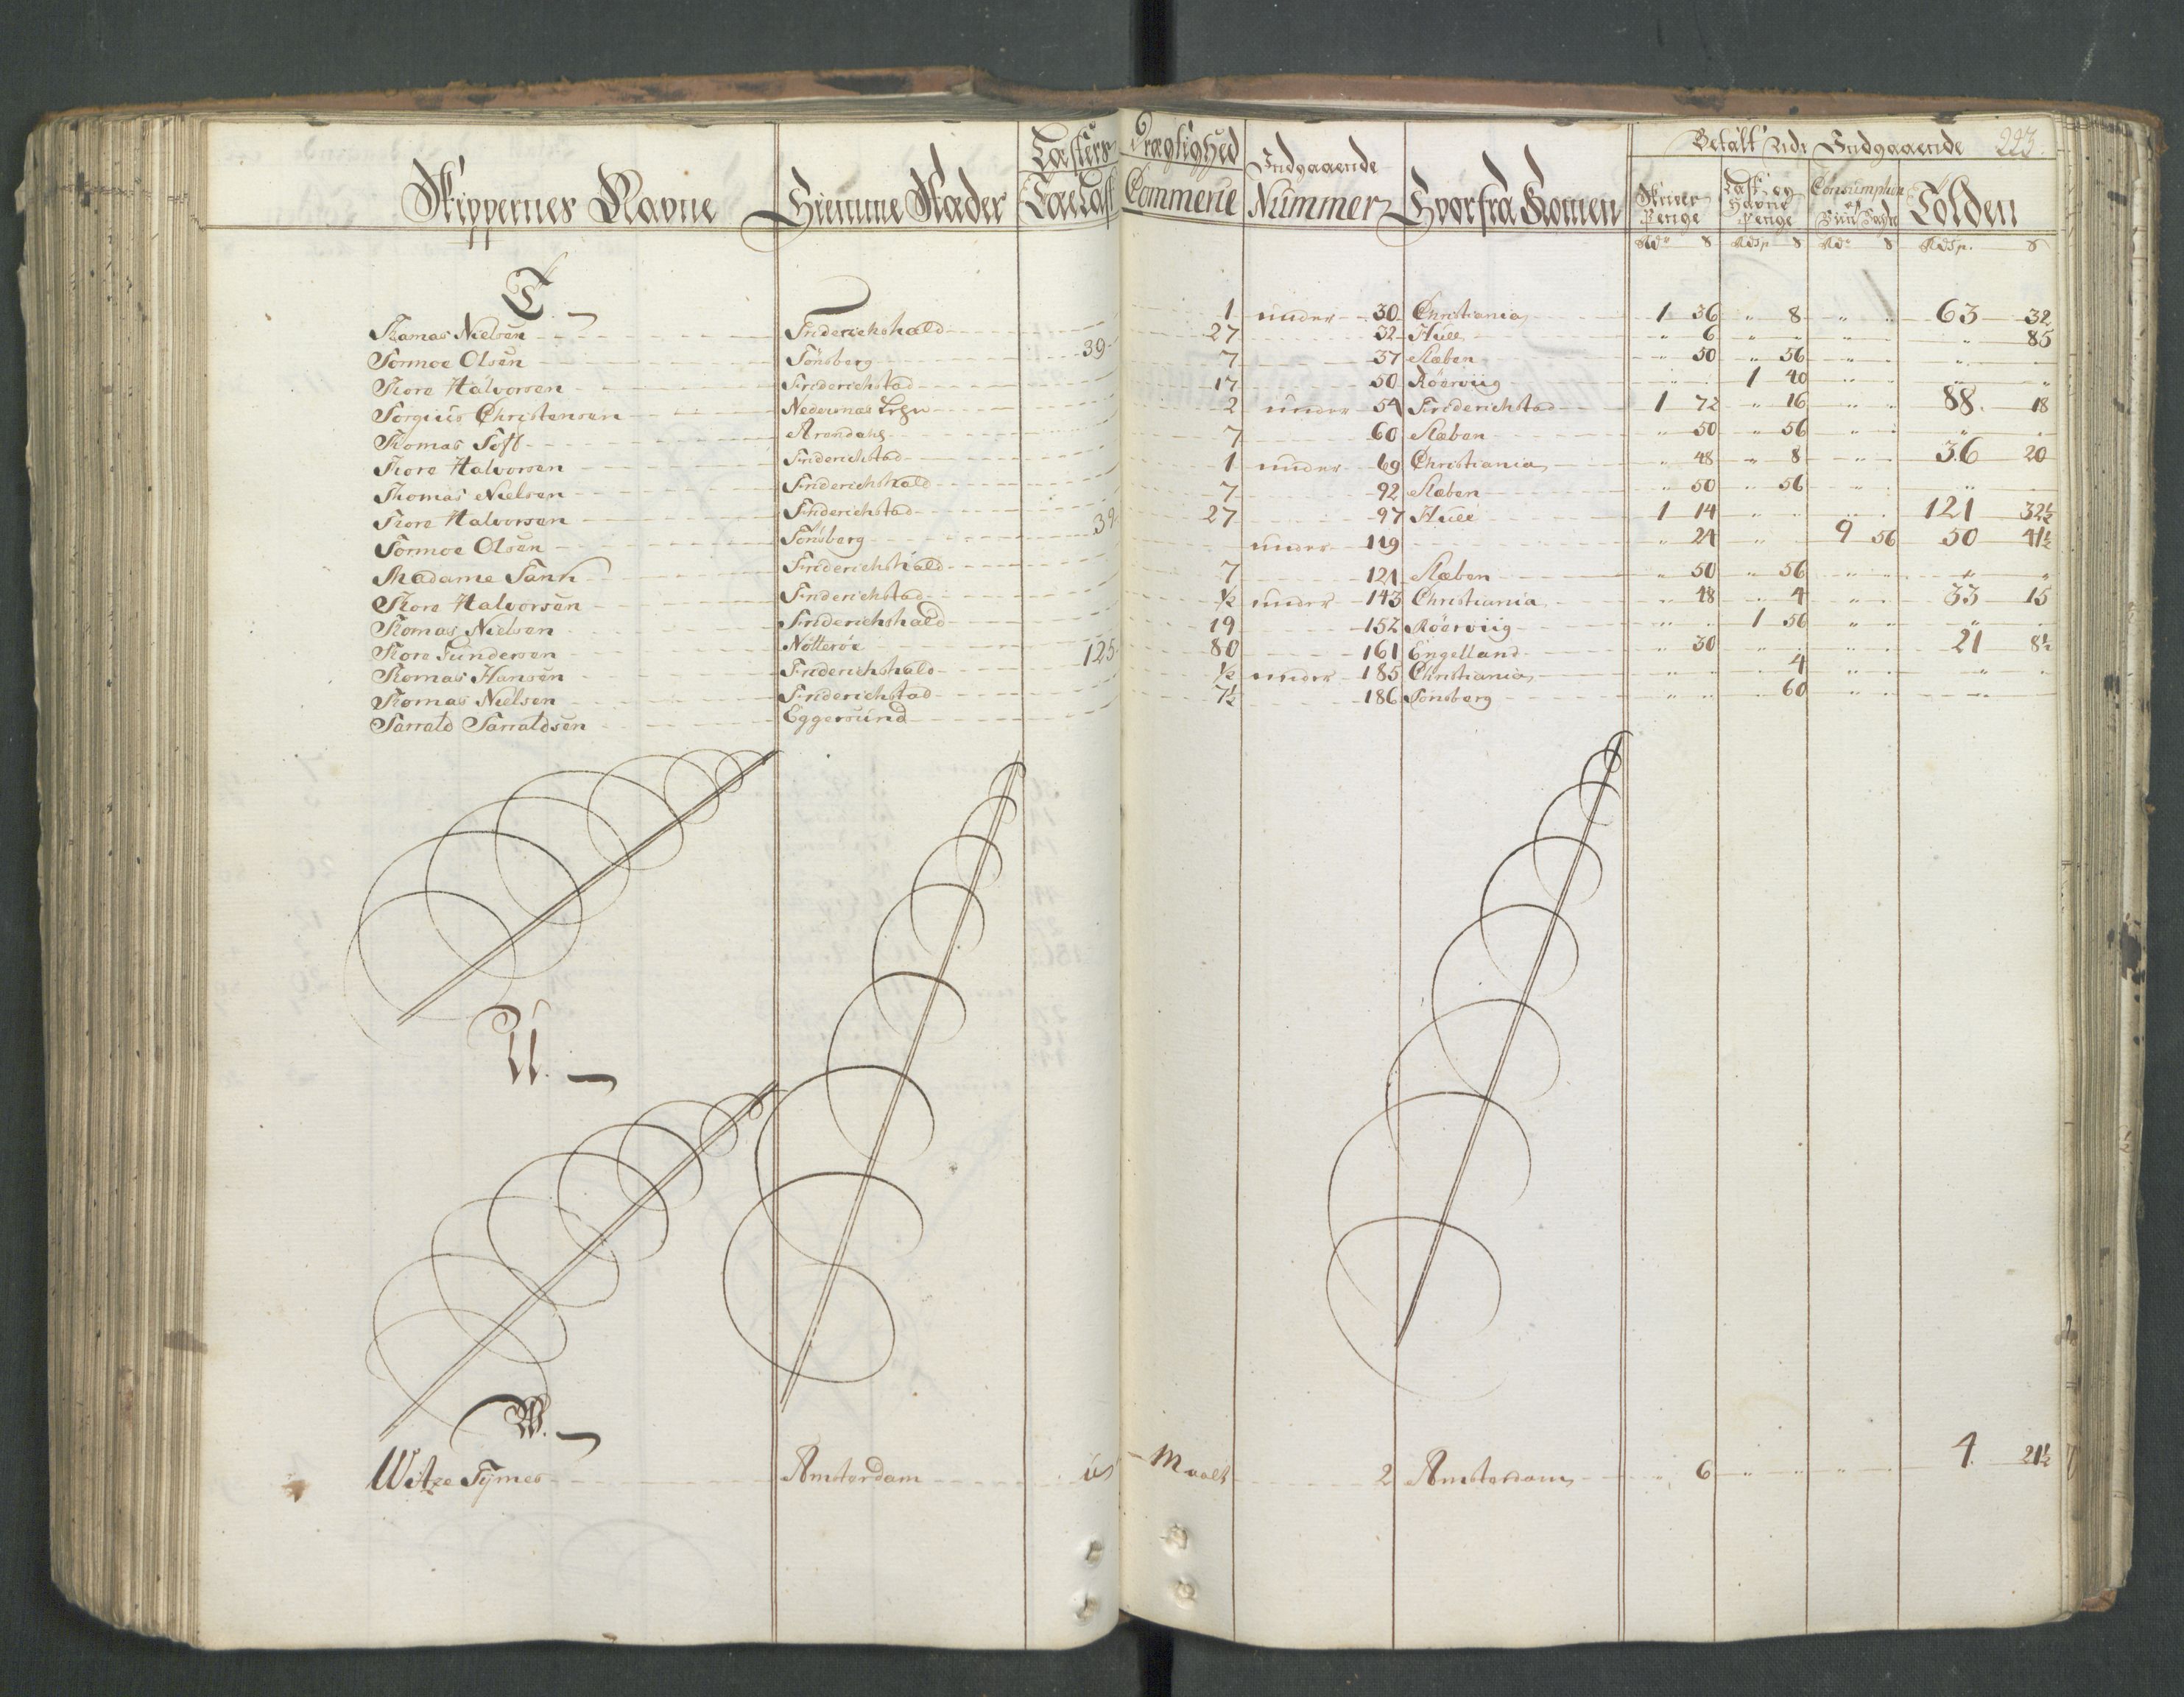 Skippernes Navne Hiemme Stæder Læsters Dragtighed Indgaaende Hvorfra Komen Betalt ved Indgaaende 223.
Trælast Commerce Nummer Skriver Penge Last og Havne Penge Consumption af Tolden
Rdr ß Rdsp ß Rdr ß Rdsp. ß
T.
Thomas Nielsen Friderichshald 1 under 30 Christiania 1 36 " 8 " " 63 32
Tormoe Olsen Tönsberg 39 27 32 Hull " 6 " " " " " 85
Thore Halvorsen Friderichstad 7 37 Læben " 50 " 56 " " " "
Torgius Christensen Nedernæs Lehn 17 50 Röerviig " " 1 40 " " " "
Thomas Toft Arendahl 2 under 54 Friderichstad 1 72 " 16 " " 88 18
Thore Halvorsen Friderichstad 7 60 Læben " 50 " 56 " " " "
Thomas Nielsen Friderichshald 1 under 69 Christiania " 48 " 8 " " 36 20
Thore Halvorsen Friderichstad 7 92 Læben " 50 " 56 " " " "
Tormoe Olsen Tönsberg 39 27 97 Hull 1 14 " " " " 121 32½
Madame Tank Friderichshald under 119 " 24 " 9 56 50 41½
Thore Halvorsen Friderichstad 7 121 Læben " 50 " 56 " " " "
Thomas Nielsen Friderichshald ½ under 143 Christiania " 48 " 4 " " 33 15
Thore Gundersen Nötteröe 19 152 Röerviig " " 1 56 " " " "
Thomas Hansen Friderichshald 125 80 161 Engelland " 30 " " " " 21 8½
Thomas Nielsen Friderichstad ½ under 185 Christiania " " " 4 " " " "
Tarrald Tarraldsen Eggersund 7½ 186 Tönsberg " " " 60 " " " "
U.
W.
Witze Tymes Amsterdam u Maalt 2 Amsterdam " 6 " " " " 4 21½